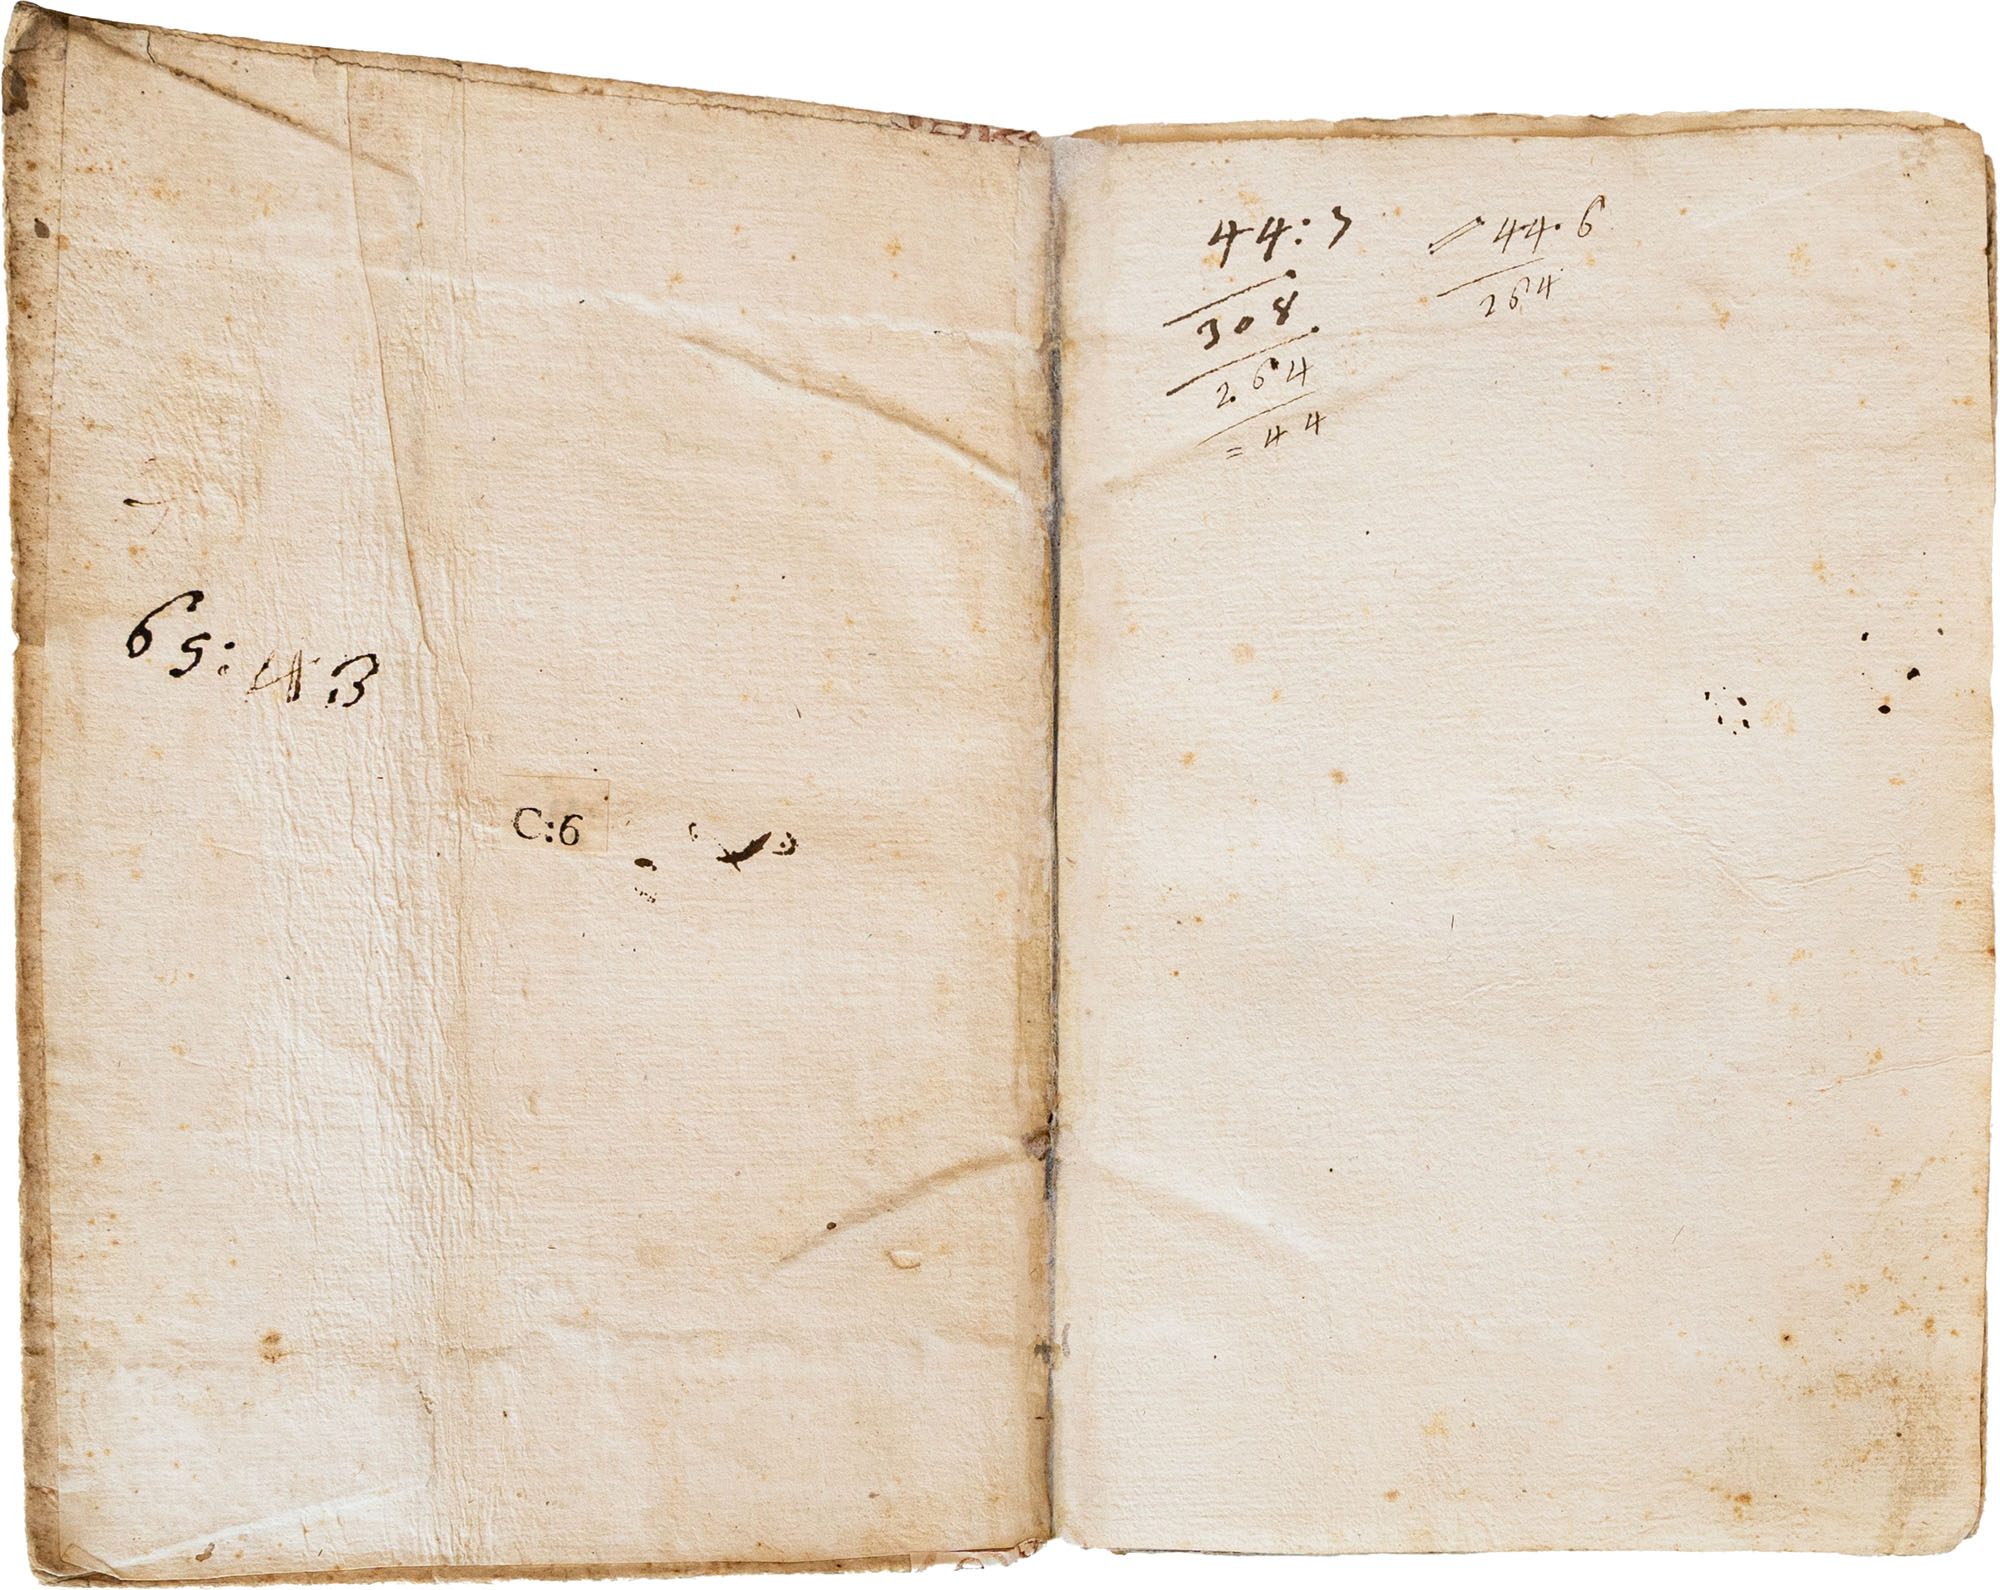 65:43
C:6
44:7
308
264
=44
44.6
264